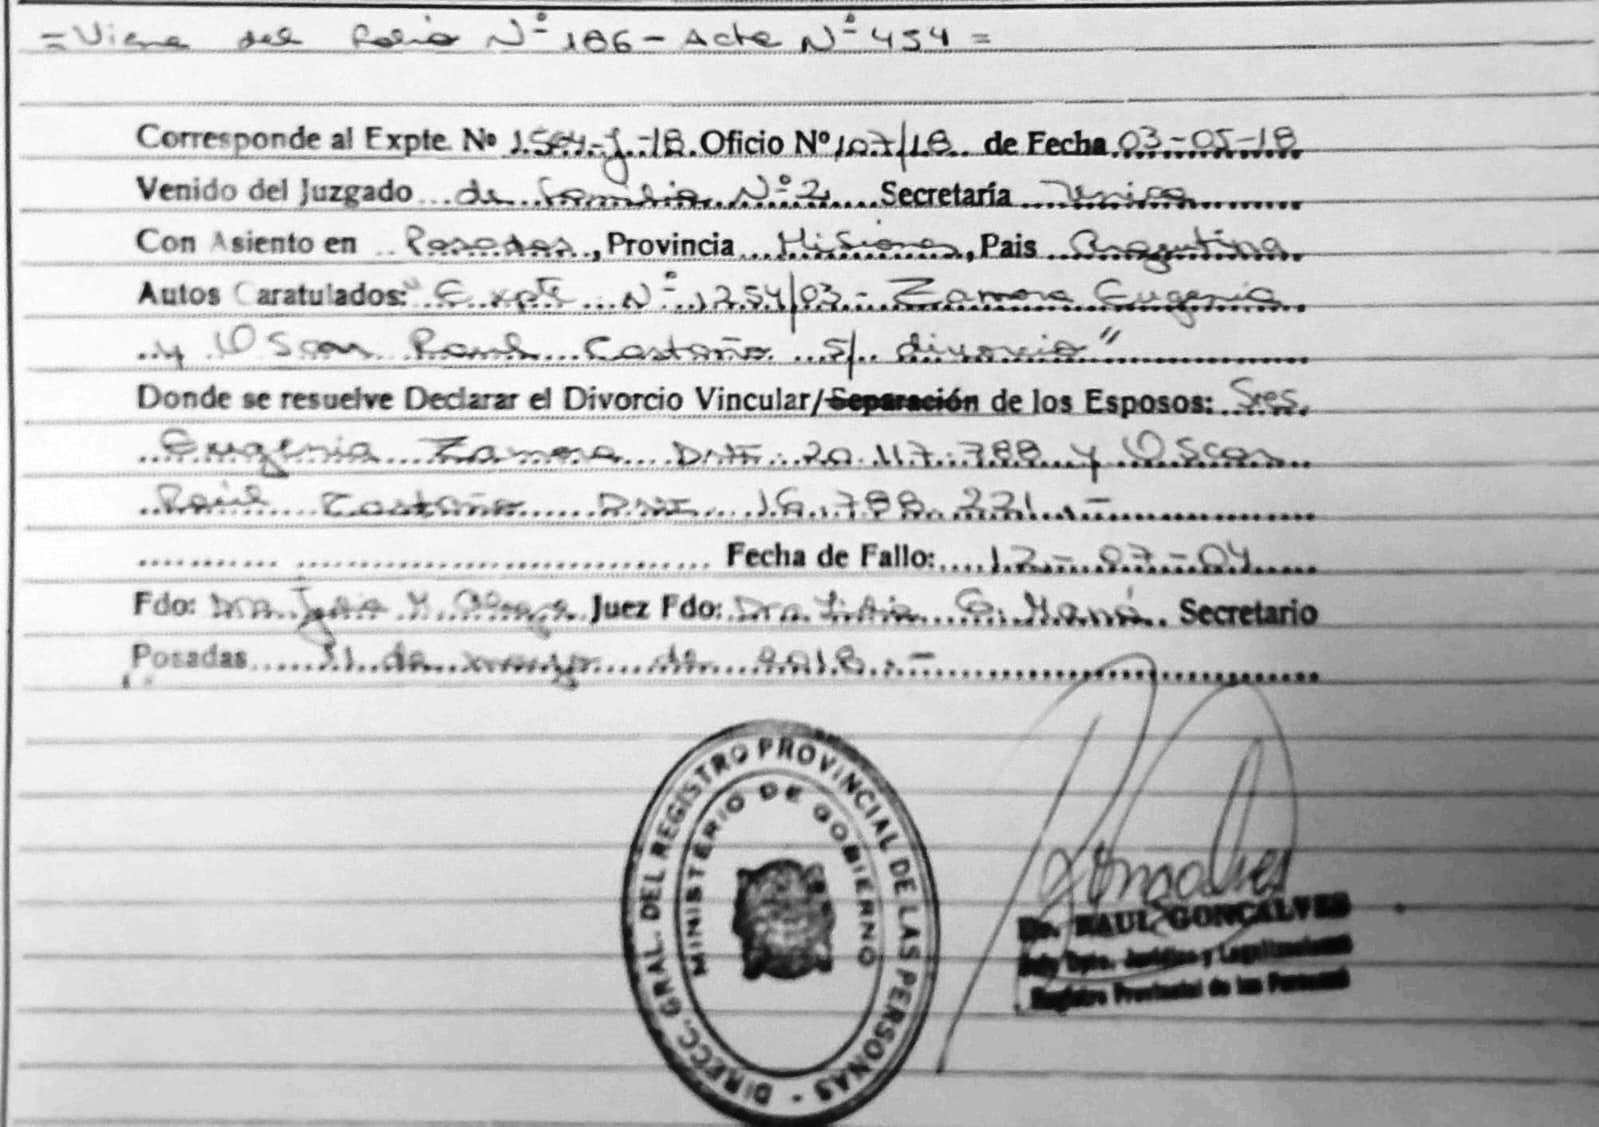 = Viene del Folio Nº 186 - Acta Nº 454 =
Corresponde al Expte. Nº 1564-J-18. Oficio Nº 107/18 de Fecha 03-05-18
Venido del Juzgado de Familia Nº 2 Secretaría Unica
Con Asiento en Posadas, Provincia Misiones, Pais Argentina.
Autos Caratulados: "Expte Nº 1254/03 - Zamora Eugenia
y Oscar Raul Castaño s/ divorcio"
Donde se resuelve Declarar el Divorcio Vincular/Separación de los Esposos: Sres.
Eugenia Zamora DNI. 20.117.788 y Oscar
Raúl Castaño DNI 16.788.221.-
Fecha de Fallo: 12-07-04
Fdo: Dra. M. Juez Fdo: Dra. Lidia Secretario
Posadas 31 de mayo de 2018.-
DIRECC. GRAL. DEL REGISTRO PROVINCIAL DE LAS PERSONAS -
MINISTERIO DE GOBIERNO
Gonçalves
Dr. RAUL GONCALVES
Dpto. Jurídico y Legalizaciones
Registro Provincial de las Personas